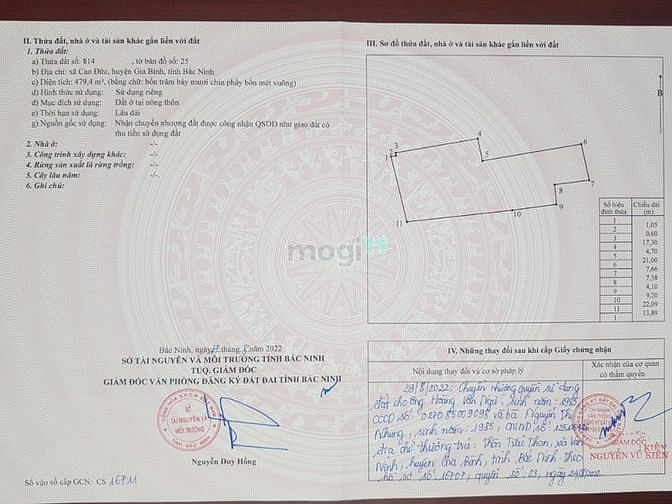 II. Thửa đất, nhà ở và tài sản khác gắn liền với đất
1. Thửa đất:
a) Thửa đất số: 814 , tờ bản đồ số: 25
b) Địa chỉ: xã Cao Đức, huyện Gia Bình, tỉnh Bắc Ninh
c) Diện tích: 479,4 m², (bằng chữ: bốn trăm bảy mươi chín phẩy bốn mét vuông)
d) Hình thức sử dụng: Sử dụng riêng
đ) Mục đích sử dụng: Đất ở tại nông thôn
e) Thời hạn sử dụng: Lâu dài
g) Nguồn gốc sử dụng: Nhận chuyển nhượng đất được công nhận QSDĐ như giao đất có
thu tiền sử dụng đất
2. Nhà ở: -/-
3. Công trình xây dựng khác: -/-
4. Rừng sản xuất là rừng trồng: -/-
5. Cây lâu năm: -/-
6. Ghi chú:
Bắc Ninh, ngày tháng năm 2022
SỞ TÀI NGUYÊN VÀ MÔI TRƯỜNG TỈNH BẮC NINH
TUQ. GIÁM ĐỐC
GIÁM ĐỐC VĂN PHÒNG ĐĂNG KÝ ĐẤT ĐAI TỈNH BẮC NINH
SỞ
TÀI NGUYÊN VÀ
MÔI TRƯỜNG
TỈNH BẮC NINH
Nguyễn Duy Hồng
Số vào sổ cấp GCN: CS 16711
mogi
III. Sơ đồ thửa đất, nhà ở và tài sản khác gắn liền với đất
B
1
2
3
4
5
6
7
8
9
10
11
Số hiệu đỉnh thửa
Chiều dài (m)
1
1,05
2
0,60
3
17,30
4
4,70
5
21,00
6
7,66
7
7,38
8
4,10
9
9,20
10
22,09
11
13,89
1
IV. Những thay đổi sau khi cấp Giấy chứng nhận
Nội dung thay đổi và cơ sở pháp lý
Xác nhận của cơ quan có thẩm quyền
29/8/2022: Chuyển nhượng quyền sử dụng
đất cho ông Hoàng Văn Ngũ, sinh năm: 1985
CCCD số: và bà Nguyễn Thị
Nhung, sinh năm: 1985, CMND số:
địa chỉ thường trú: Thôn xã Vạn
Ninh, huyện Gia Bình, tỉnh Bắc Ninh theo
hồ sơ số: 16707 quyển số: 03, ngày 24/8/2022
GIÁM ĐỐC
NGUYỄN VŨ KIÊN